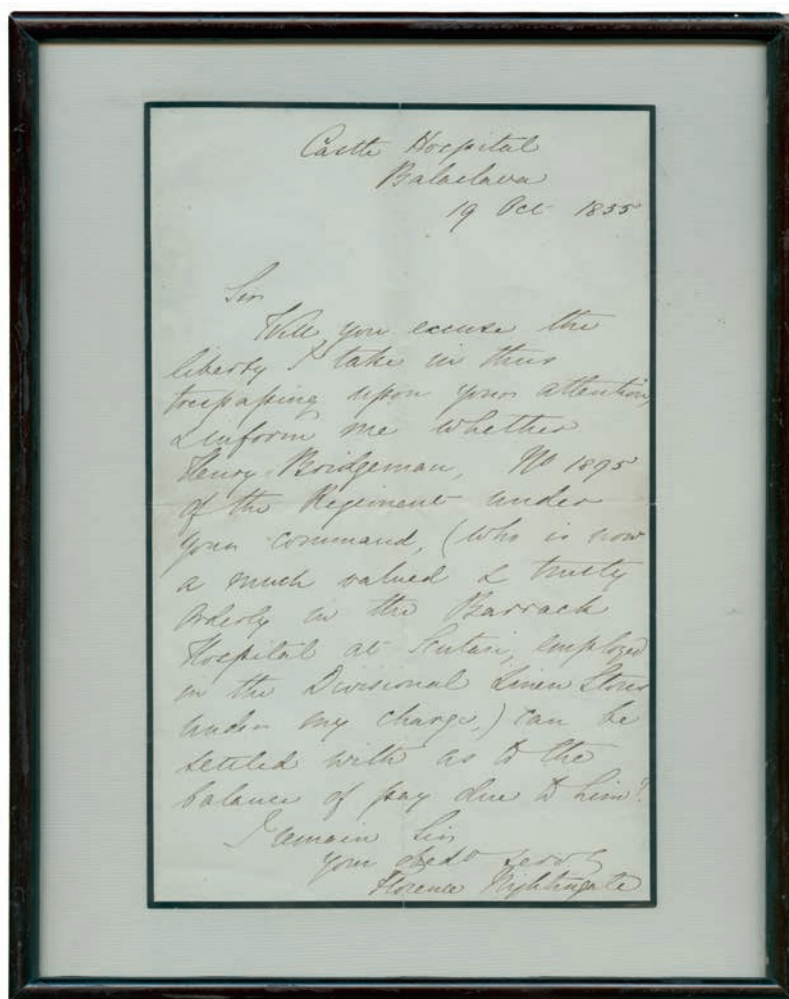 Castle Hospital
Balaclava
19 Oct 1855
Sir
Will you excuse the
liberty I take in thus
trespassing upon your attention,
& inform me whether
Henry Bridgeman, No 1895
of the Regiment under
your command, (who is now
a much valued & trusty
Orderly in the Barrack
Hospital at Scutari, employed
in the Divisional Linen Stores
under my charge,) can be
settled with as to the
balance of pay due to him?
I remain Sir
your obedt servt
Florence Nightingale